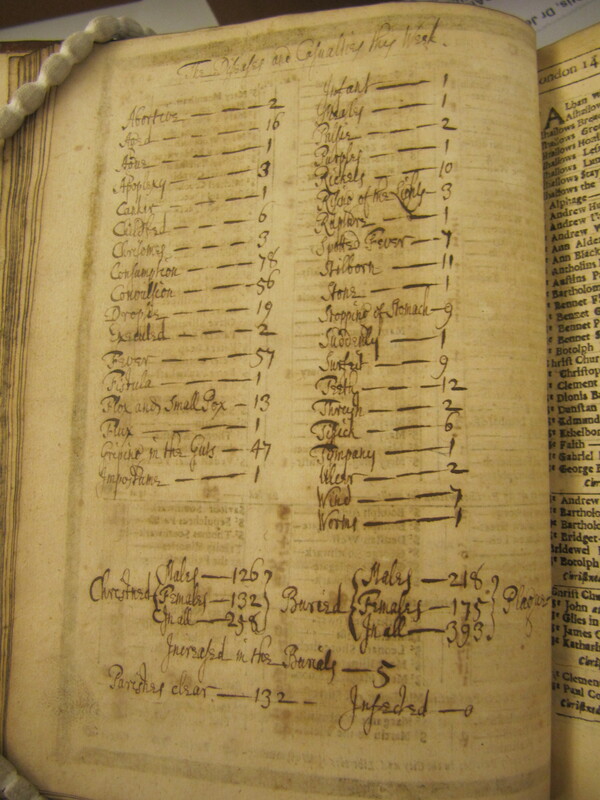 The Diseases and Casualties this Week.
Abortive — 2
Aged — 16
Ague — 1
Apoplexy — 3
Cancer — 1
Childbed — 6
Chrisomes — 3
Consumption — 78
Convulsion — 56
Dropsie — 19
Executed — 2
Feaver — 57
Fistula — 1
Flox and Small Pox — 13
Flux — 1
Griping in the Guts — 47
Impostume — 1
Infant — 1
Palsie — 2
Purples — 1
Rickets — 10
Rising of the Lights — 3
Rupture — 1
Spotted Feaver — 7
Stilborn — 11
Stone — 1
Stopping of Stomach — 9
Suddenly — 1
Surfeit — 9
Teeth — 12
Thrush — 2
Tissick — 6
Timpany — 1
Ulcer — 2
Wind — 7
Worms — 1
Christned Males — 126
Females — 132
In all — 258
Buried Males — 218
Females — 175
In all — 393
Increased in the Burials — 5
Parishes clear — 132 — Infected — 0
London 14
Alphage
Andrew
Andrew
Andrew
Ann Alder
Ann Black
Bartholom
Bennet
Bennet
Bennet
Bennet
Botolph
Christ Church
Christop
Clement
Dionis Ba
Dunstan
Edmund
Ethelbor
Faith
Gabriel
George B
Andrew
Bartholo
Bartholo
Bridget
Bridewel
Botolph
John a
Giles in
James C
Clement
Paul Co